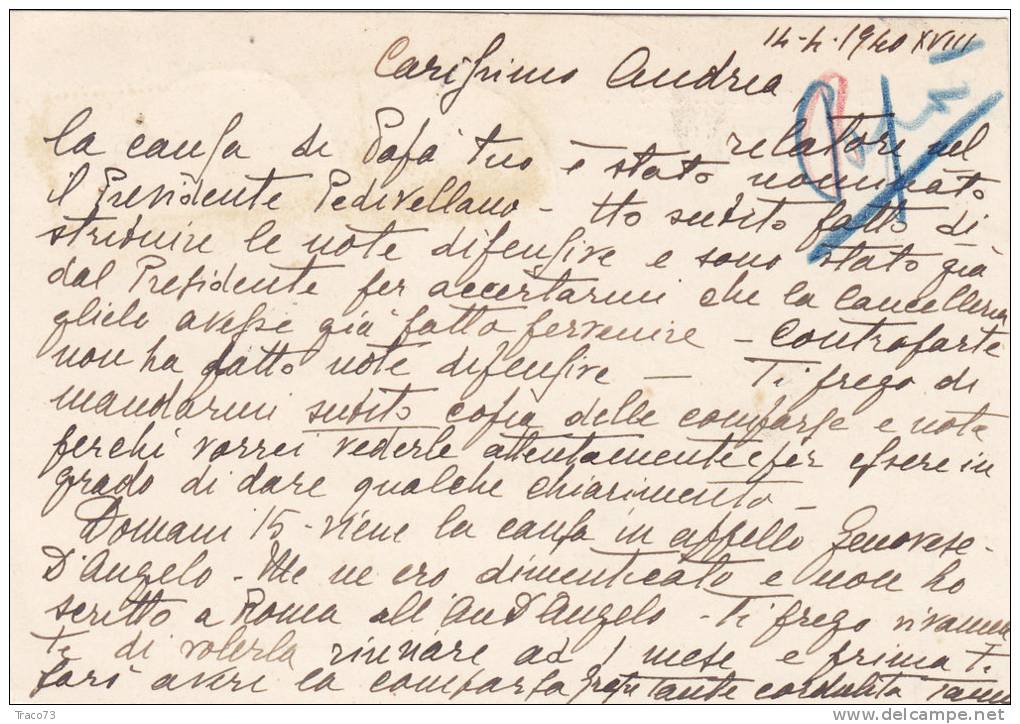 14-4-1940 XVIII
Carissimo Andrea
relatore nel
la causa di Papà tuo è stato nominato
il Presidente Pedivellano - Ho subito fatto di
stribuire le note difensive e sono stato già
dal Presidente per accertarmi che la Cancelleria
gliele avesse già fatto pervenire - Controparte
non ha fatto note difensive — Ti prego di
mandarmi subito copia delle comparse e note
perchè vorrei vederle attentamente e per essere in
grado di dare qualche chiarimento -
Domani 15 - viene la causa in appello Genovese -
D'Angelo - Me ne ero dimenticato e non ho
scritto a Roma all'Avv D'Angelo - Ti prego vivamen
te di volerla rinviare ad 1 mese e prima ti
farò avere la comparsa
Traco73
www.delcampe.net